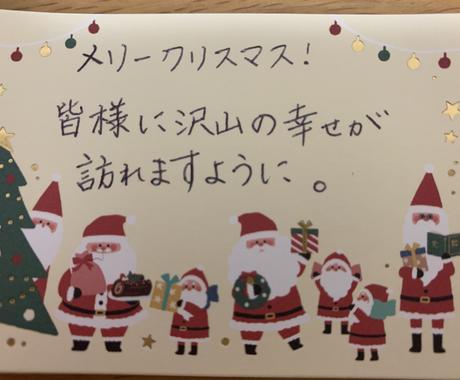 メリークリスマス!
皆様に沢山の幸せが
訪れますように。